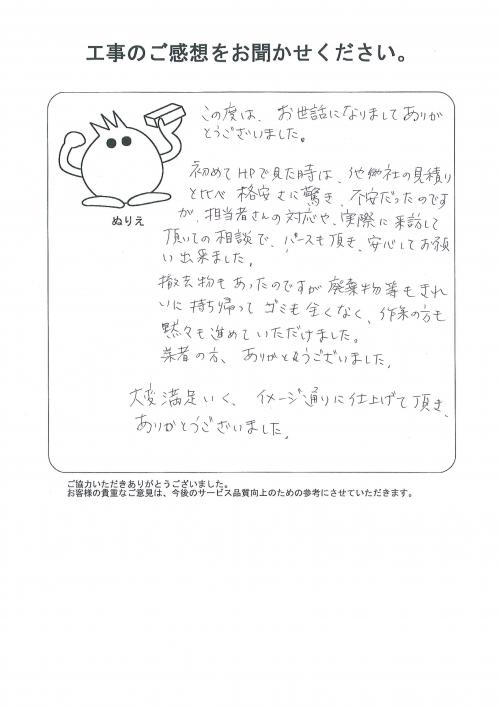 工事のご感想をお聞かせください。
この度は、お世話になりましてありが
とうございました。
初めてHPで見た時は、他社の見積り
と比べ格安さに驚き、不安だったのです
が、担当者さんの対応や、実際に来訪して
頂いての相談で、パースも頂き、安心してお願
い出来ました。
ぬりえ
撤去物もあったのですが廃棄物等もきれ
いに持ち帰ってゴミも全くなく、作業の方も
黙々も進めていただけました。
業者の方、ありがとうございました。
大変満足いく、イメージ通りに仕上げて頂き、
ありがとうございました。
ご協力いただきありがとうございました。
お客様の貴重なご意見は、今後のサービス品質向上のための参考にさせていただきます。